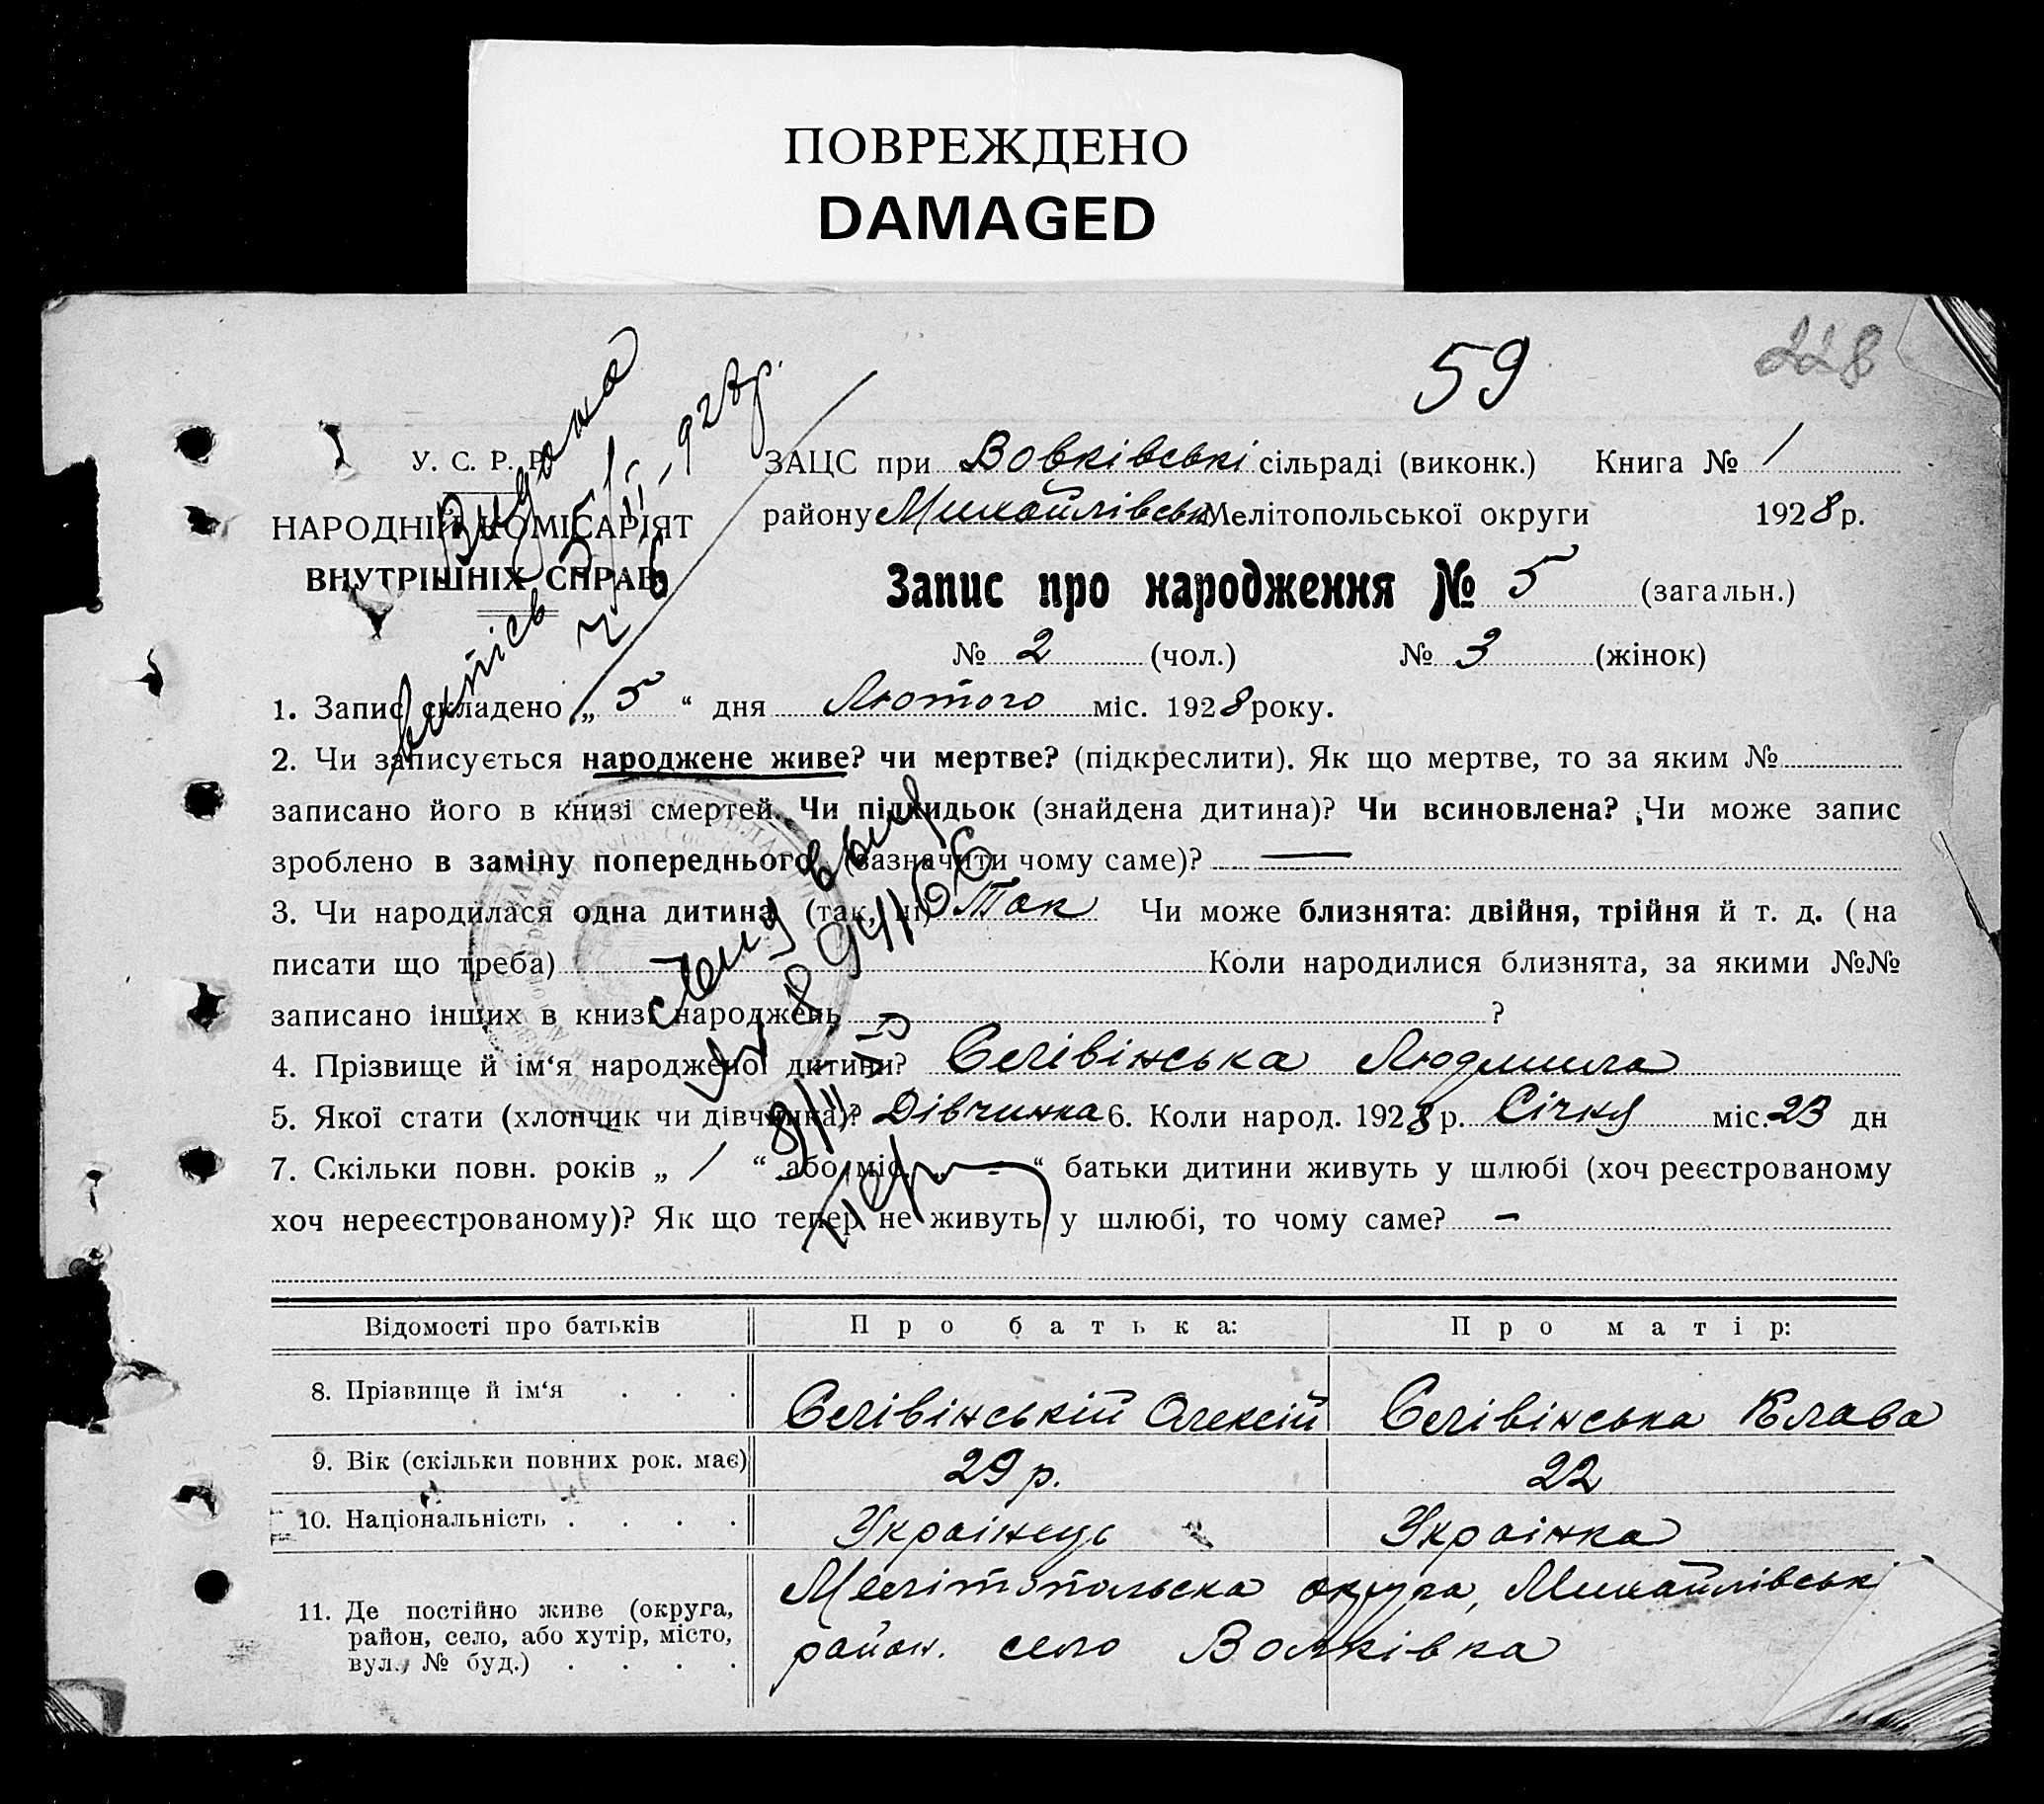 ПОВРЕЖДЕНО
DAMAGED
59
228
У. С. Р. Р.
НАРОДНІЙ КОМІСАРІЯТ
ВНУТРІШНІХ СПРАВ
Видана
випісь 5/II-928р.
ч 6
ЗАЦС при Вовківські сільраді (виконк.) Книга № 1
району Михайлівськ Мелітопольської округи 1928 р.
Запис про народження № 5 (загальн.)
№ 2 (чол.) № 3 (жінок)
1. Запис складено „ 5 “ дня Лютого міс. 1928 року.
2. Чи записується народжене живе? чи мертве? (підкреслити). Як що мертве, то за яким №
записано його в книзі смертей. Чи підкидьок (знайдена дитина)? Чи всиновлена? Чи може запис
зроблено в заміну попереднього (зазначити чому саме)? —
3. Чи народилася одна дитина (так, ні) Так Чи може близнята: двійня, трійня й т. д. (на
писати що треба) Коли народилися близнята, за якими №№
записано інших в книзі народжень ?
4. Прізвище й ім‘я народженої дитини? Селівінська Людмила
5. Якої стати (хлопчик чи дівчинка)? Дівчинка 6. Коли народ. 1928 р. Січня міс. 23 дн
7. Скільки повн. років „ 1 “ або міс. „ - “ батьки дитини живуть у шлюбі (хоч реєстрованому
хоч нереєстрованому)? Як що тепер не живуть у шлюбі, то чому саме? -
Відомості про батьків Про батька: Про матір:
8. Прізвище й ім‘я . . . Селівінській Олексій Селівінська Клава
9. Вік (скільки повних рок. має) 29 р. 22
10. Національність . . . . Українець Українка
11. Де постійно живе (округа, Мелітопольска округа, Михайлівськ
район, село, або хутір, місто, район. село Вовківка
вул., № буд.) . . . .